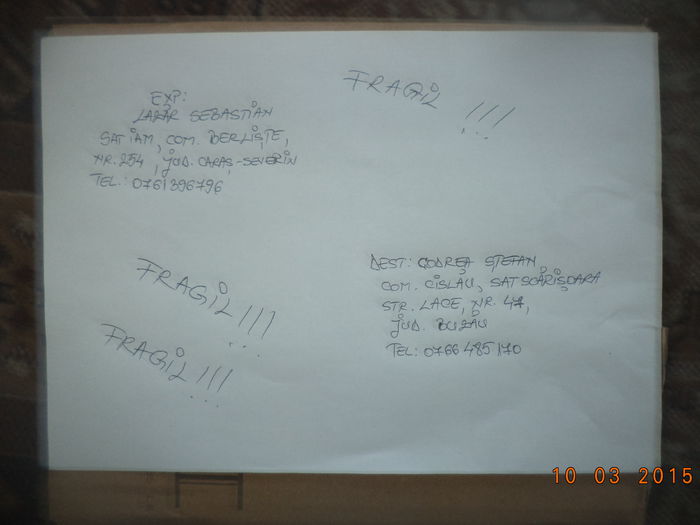 EXP:
LAZĂR SEBASTIAN
SAT IAM, COM. BERLIȘTE,
NR. 254, JUD. CARAȘ-SEVERIN
TEL.: 0761396796
FRAGIL !!!
FRAGIL!!!
FRAGIL!!!
DEST: CODREA ȘTEFAN,
COM. CISLĂU, SAT SCĂRIȘOARA
STR. LACE, NR. 47,
JUD. BUZĂU
TEL: 0766485170
10 03 2015